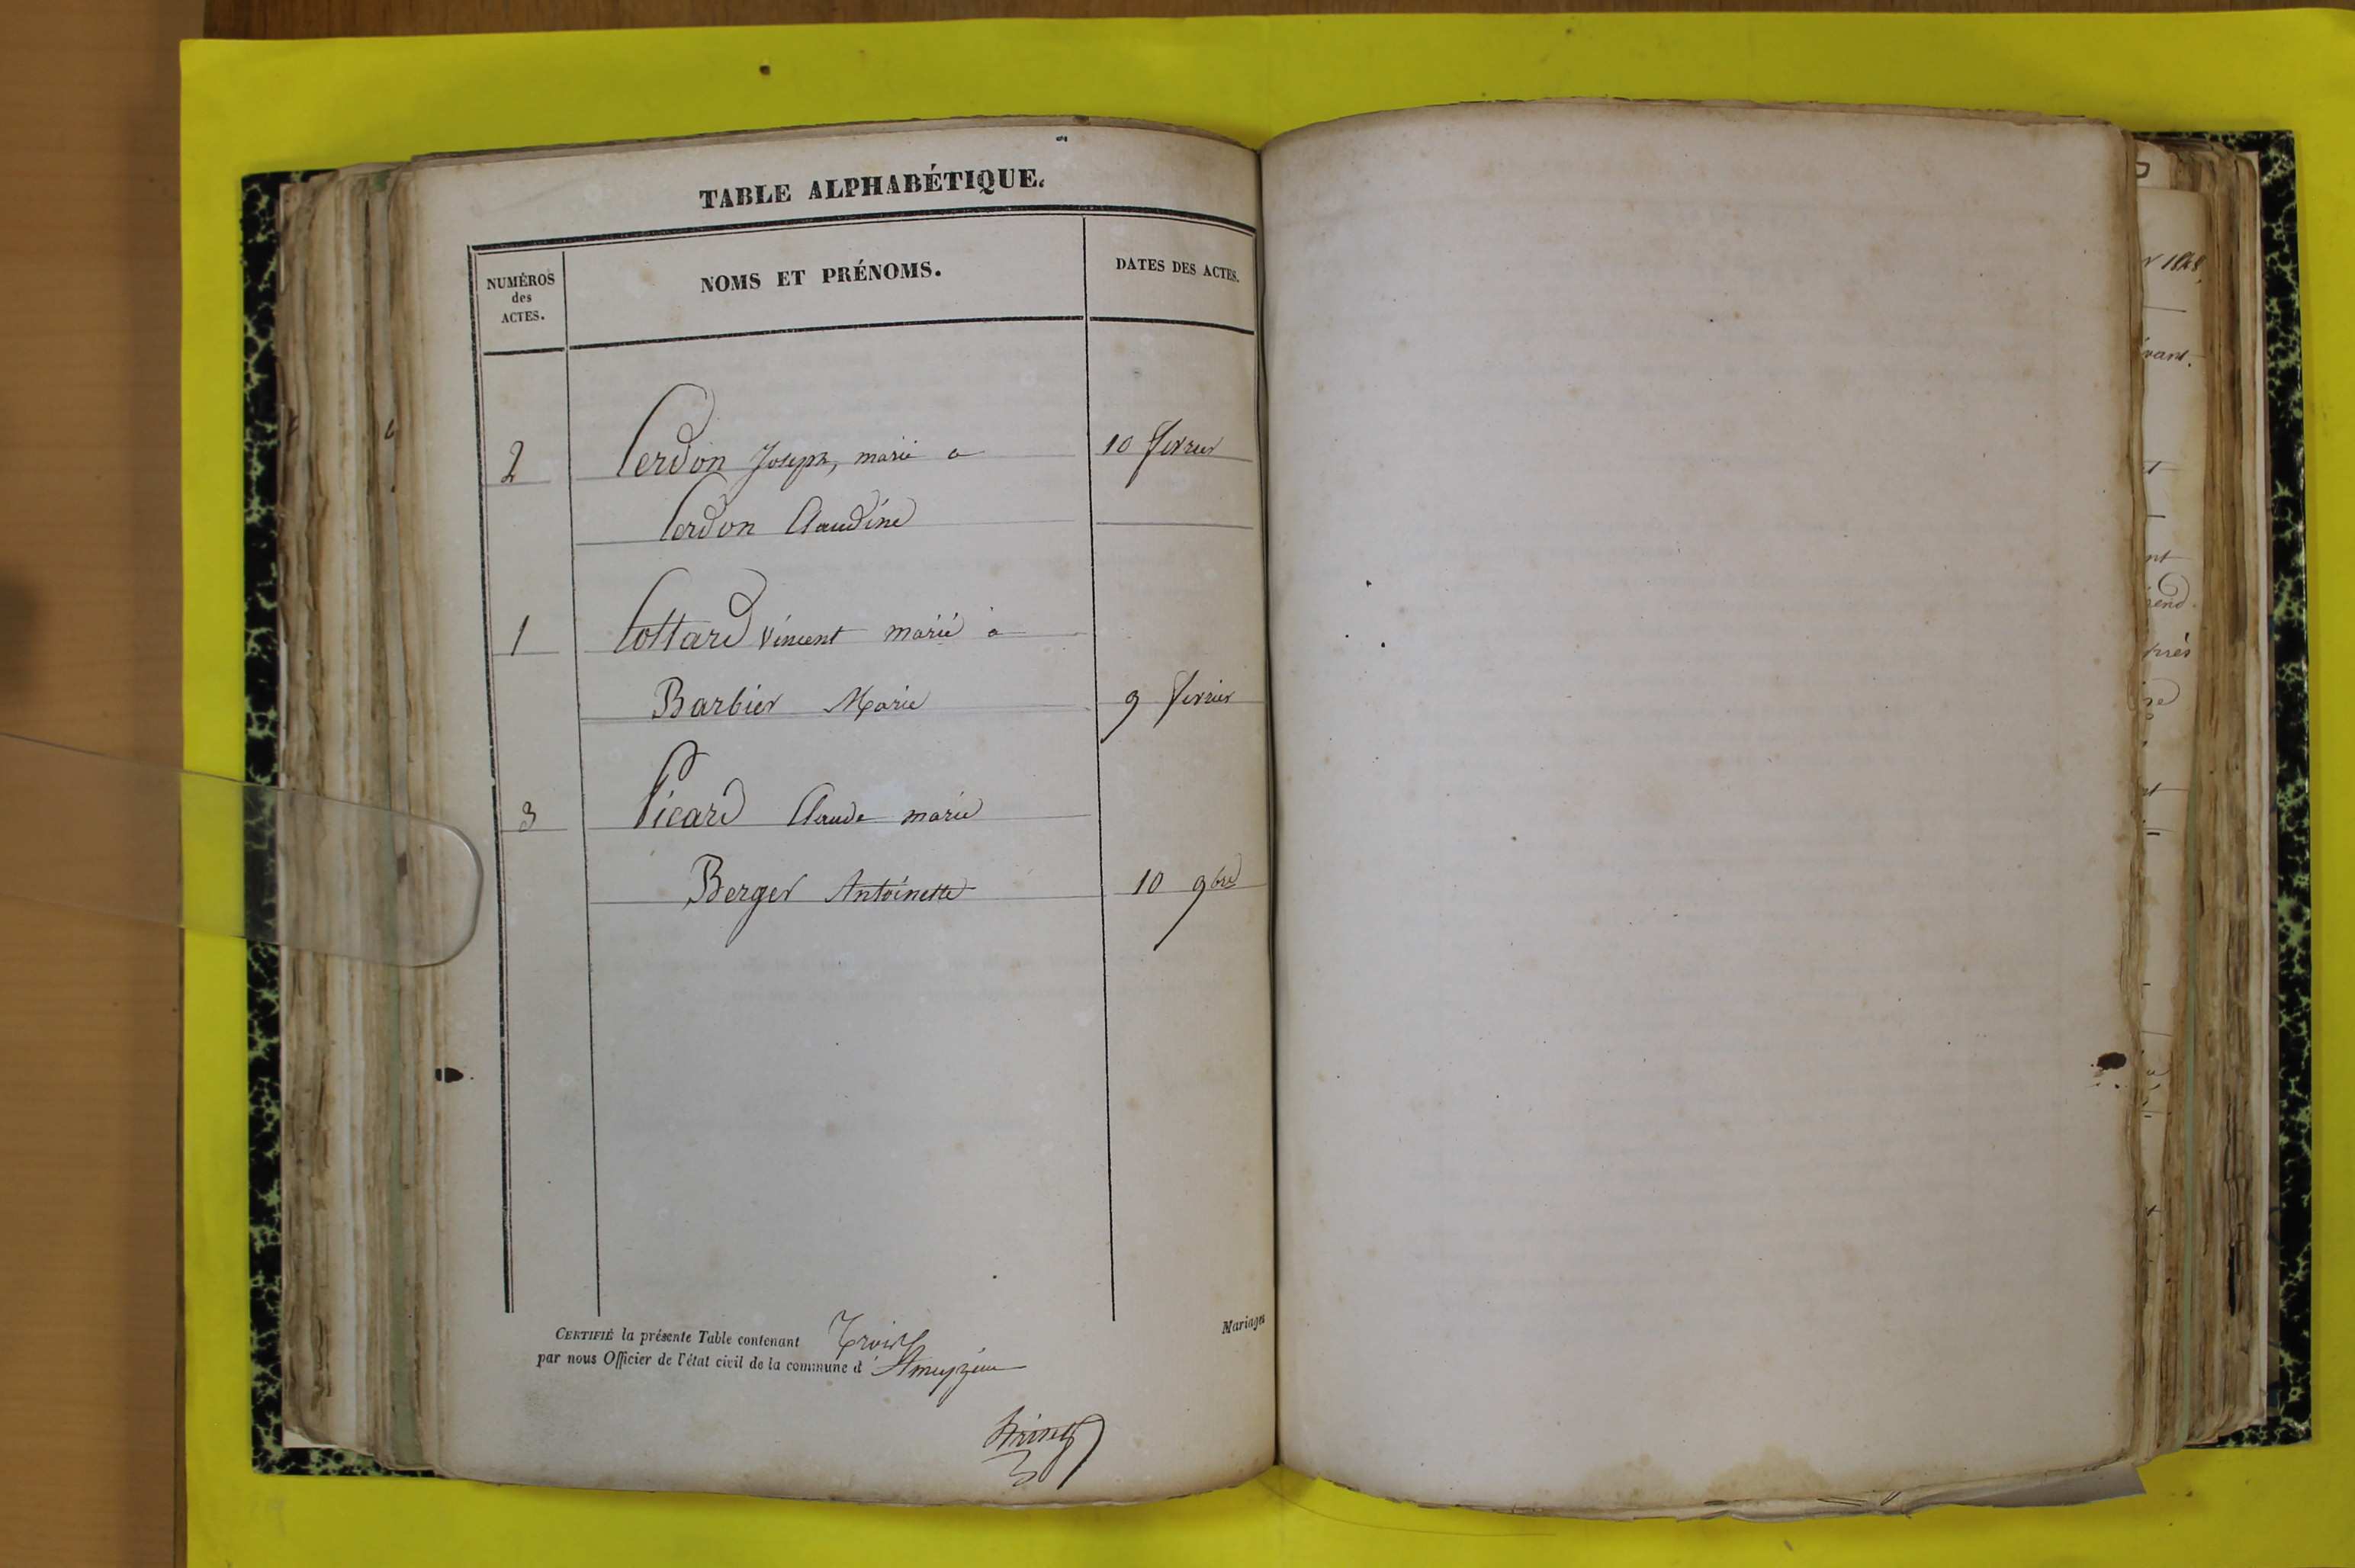 TABLE ALPHABÉTIQUE.
NUMÉROS des ACTES.
NOMS ET PRÉNOMS.
DATES DES ACTES.
2 Cerdon Joseph, marié a 10 fevrier
Cerdon Claudine
1 Cottard Vincent marié a
Barbier Marie 9 fevrier
3 Picard Claude marié
Berger Antoinette 10 9bre
CERTIFIÉ la présente Table contenant Trois
par nous Officier de l'état civil de la commune d' Ameyzieu
Mariages